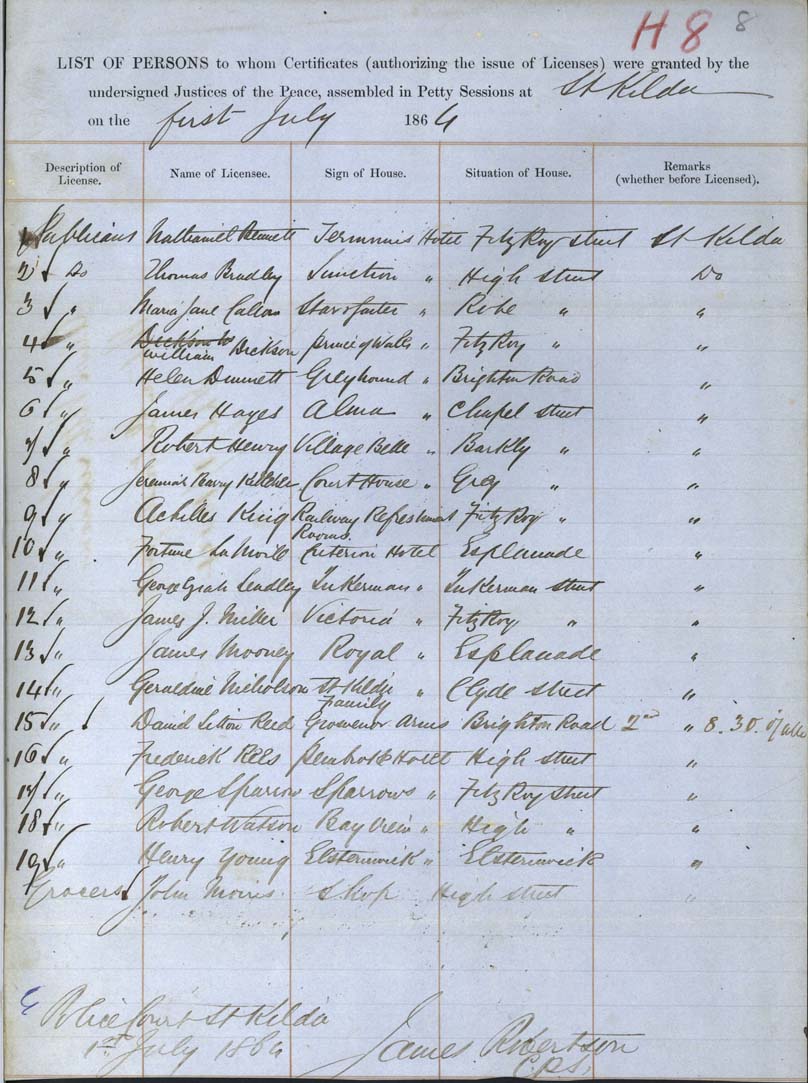 H 8 8
LIST OF PERSONS to whom Certificates (authorizing the issue of Licenses) were granted by the
undersigned Justices of the Peace, assembled in Petty Sessions at St Kilda
on the first July 1864
Description of License. Name of Licensee. Sign of House. Situation of House. Remarks (whether before Licensed).
1 Publicans Nathaniel Bennett Terminus Hotel FitzRoy street St Kilda
2 ✓ Do Thomas Bradley Junction " High street Do
3 ✓ " Maria Jane Callow Star &Garter " Robe " "
4 ✓ " Dickson W
William Dickson prince of Wales " FitzRoy " "
5 ✓ " Helen Dunnett Greyhound " Brighton Road "
6 ✓ " James Hayes Alma " Chapel street "
7 ✓ " Robert Henry Village Belle " Barkly " "
8 ✓ " Jeremiah Barry Court House " Grey " "
9 ✓ " Achilles King Railway Refreshment FitzRoy " "
Rooms
10 ✓ " Fortune Criterion Hotel Esplanade "
11 ✓ " George Lendley Inkerman " Inkerman street "
12 ✓ " James J. Miller Victoria " FitzRoy " "
13 ✓ " James Mooney Royal " Esplanade "
14 ✓ " Geraldine Nicholson St Kilda " Clyde street "
Family
15 ✓ " David Reed Grosvenor Arms Brighton Road 2nd " 8.30
16 ✓ " Frederick Rees Pembroke Hotel High street "
17 ✓ " George Sparrow Sparrows " FitzRoy street "
18 ✓ " Robert Watson Bay View " High " "
19 ✓ " Henry Young Elsternwick " Elsternwick "
Grocers ✓ John Morris Shop High street "
Police Court St Kilda
1st July 1864 James Robertson
C.P.S.